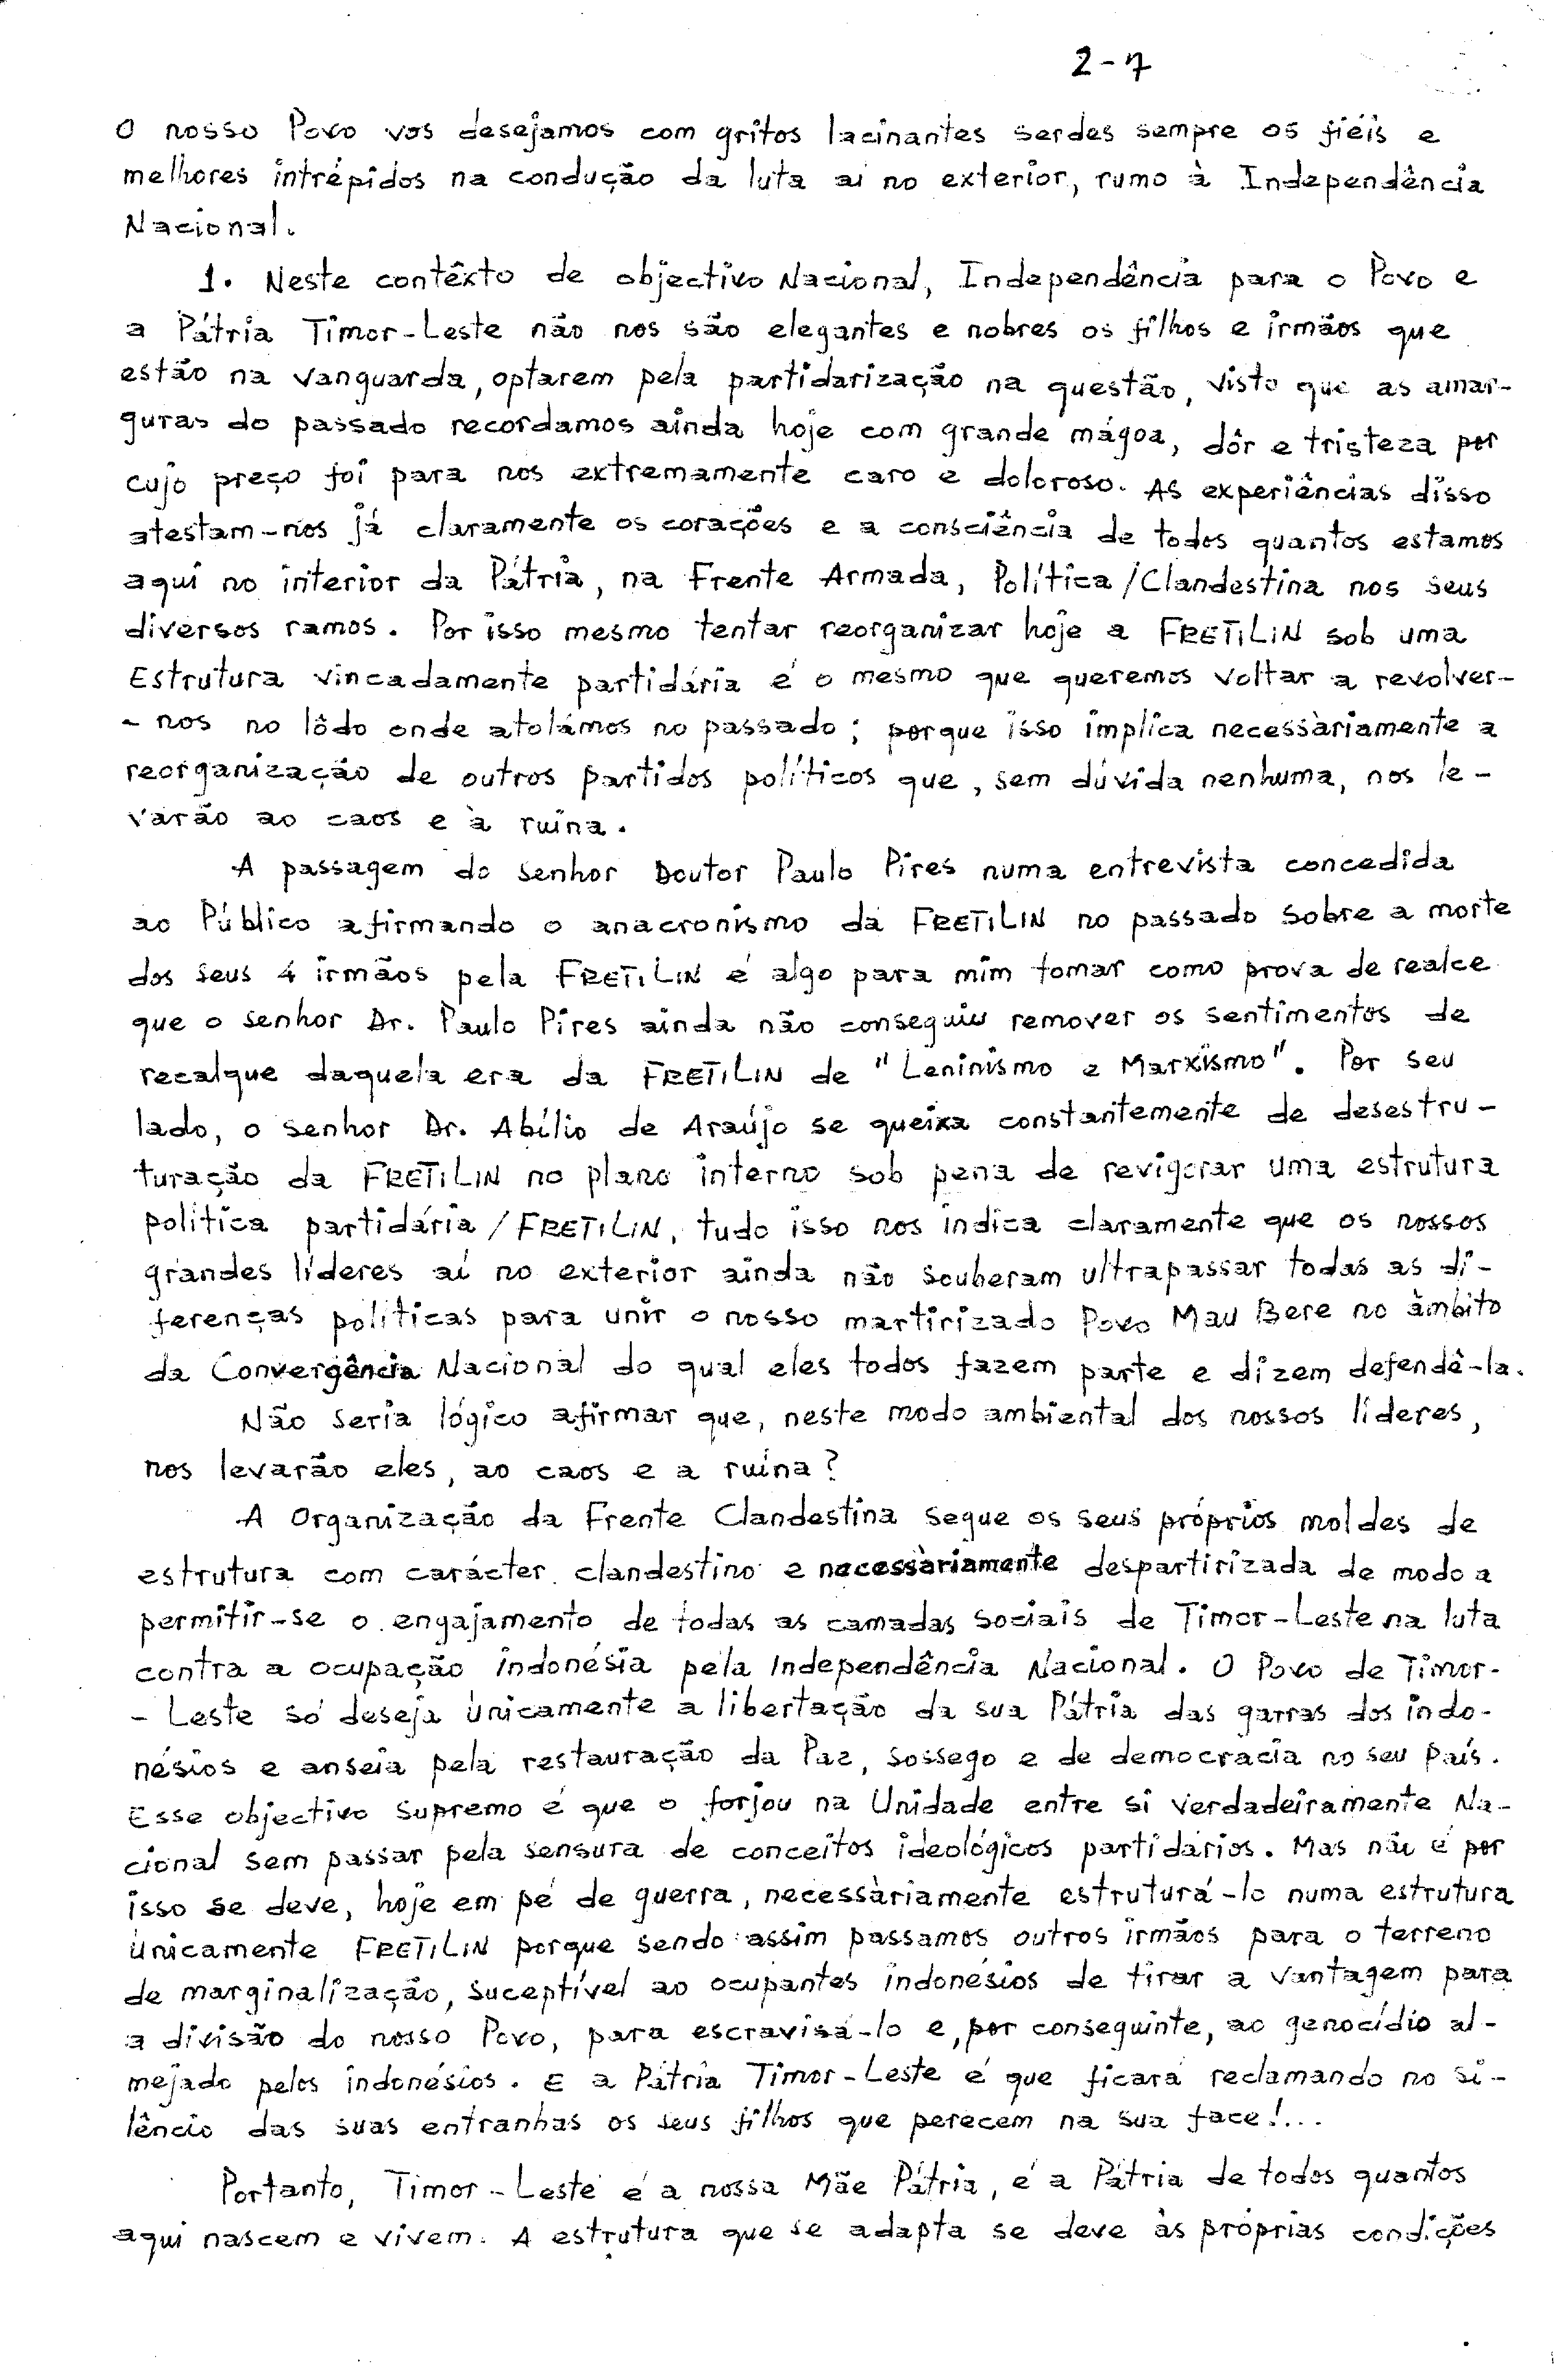 2-7
O nosso Povo vos desejamos com gritos lacinantes serdes sempre os fiéis e
melhores intrépidos na condução da luta aí no exterior, rumo à Independência
Nacional.
1. Neste contêxto de objectivo Nacional, Independência para o Povo e
a Pátria Timor-Leste não nos são elegantes e nobres os filhos e irmãos que
estão na vanguarda, optarem pela partidarização na questão, visto que as amar-
guras do passado recordamos ainda hoje com grande mágoa, dôr e tristeza por
cujo preço foi para nos extremamente caro e doloroso. As experiências disso
atestam-nos já claramente os corações e a consciência de todos quantos estamos
aqui no interior da Pátria, na Frente Armada, Política/Clandestina nos seus
diversos ramos. Por isso mesmo tentar reorganizar hoje a FRETILIN sob uma
Estrutura vincadamente partidária é o mesmo que queremos voltar a revolver-
-nos no lôdo onde atolámos no passado; porque isso implica necessàriamente a
reorganização de outros partidos políticos que, sem dúvida nenhuma, nos le-
varão ao caos e à ruína.
A passagem do senhor Doutor Paulo Pires numa entrevista concedida
ao Público afirmando o anacronismo da FRETILIN no passado sobre a morte
dos seus 4 irmãos pela FRETILIN é algo para mim tomar como prova de realce
que o senhor Dr. Paulo Pires ainda não conseguiu remover os sentimentos de
recalque daquela era da FRETILIN de "Leninismo e Marxismo". Por seu
lado, o senhor Dr. Abílio de Araújo se queixa constantemente de desestru-
turação da FRETILIN no plano interno sob pena de revigorar uma estrutura
política partidária/FRETILIN, tudo isso nos indica claramente que os nossos
grandes líderes aí no exterior ainda não souberam ultrapassar todas as di-
ferenças políticas para unir o nosso martirizado Povo Mau Bere no âmbito
da Convergência Nacional do qual eles todos fazem parte e dizem defendê-la.
Não seria lógico afirmar que, neste modo ambiental dos nossos líderes,
nos levarão eles, ao caos e a ruína?
A Organização da Frente Clandestina segue os seus próprios moldes de
estrutura com carácter clandestino e necessàriamente despartirizada de modo a
permitir-se o engajamento de todas as camadas sociais de Timor-Leste na luta
contra a ocupação indonésia pela Independência Nacional. O Povo de Timor-
-Leste só deseja ùnicamente a libertação da sua Pátria das garras dos indo-
nésios e anseia pela restauração da Paz, sossego e de democracia no seu país.
Esse objectivo supremo é que o forjou na Unidade entre si verdadeiramente Na-
cional sem passar pela sensura de conceitos ideológicos partidários. Mas não é por
isso se deve, hoje em pé de guerra, necessàriamente estruturá-lo numa estrutura
ùnicamente FRETILIN porque sendo assim passamos outros irmãos para o terreno
de marginalização, suceptível ao ocupantes indonésios de tirar a vantagem para
a divisão do nosso Povo, para escravisá-lo e, por conseguinte, ao genocídio al-
mejado pelos indonésios. E a Pátria Timor-Leste é que ficará reclamando no si-
lêncio das suas entranhas os seus filhos que perecem na sua face!...
Portanto, Timor-Leste é a nossa Mãe Pátria, é a Pátria de todos quantos
aqui nascem e vivem. A estrutura que se adapta se deve às próprias condições